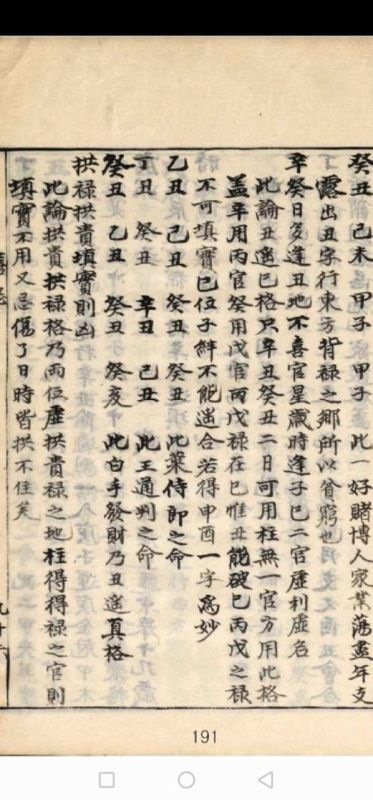 癸丑　己未　甲子　甲子　此一好賭博人家業蕩盡年支
露出丑字行東方背祿之鄉所以貧窮也
辛癸日多逢丑地不喜官星歲時逢子巳二宮虛利虛名
此論丑遙巳格只辛丑癸丑二日可用柱無一官方用此格
蓋辛用丙官癸用戊官丙戊祿在巳惟丑能破巳丙戊之祿
不可填實巳位子絆不能遙合若得申酉一字為妙
乙丑　己丑　癸丑　癸丑　此葉侍郎之命
丁丑　癸丑　辛丑　己丑　此王通判之命
癸丑　乙丑　癸丑　癸亥　此白手發財乃丑遙真格
拱祿拱貴填實則凶
此論拱貴拱祿格乃兩位虛拱貴祿之地柱得得祿之官則
填實不用又忌傷了日時皆拱不住矣
191